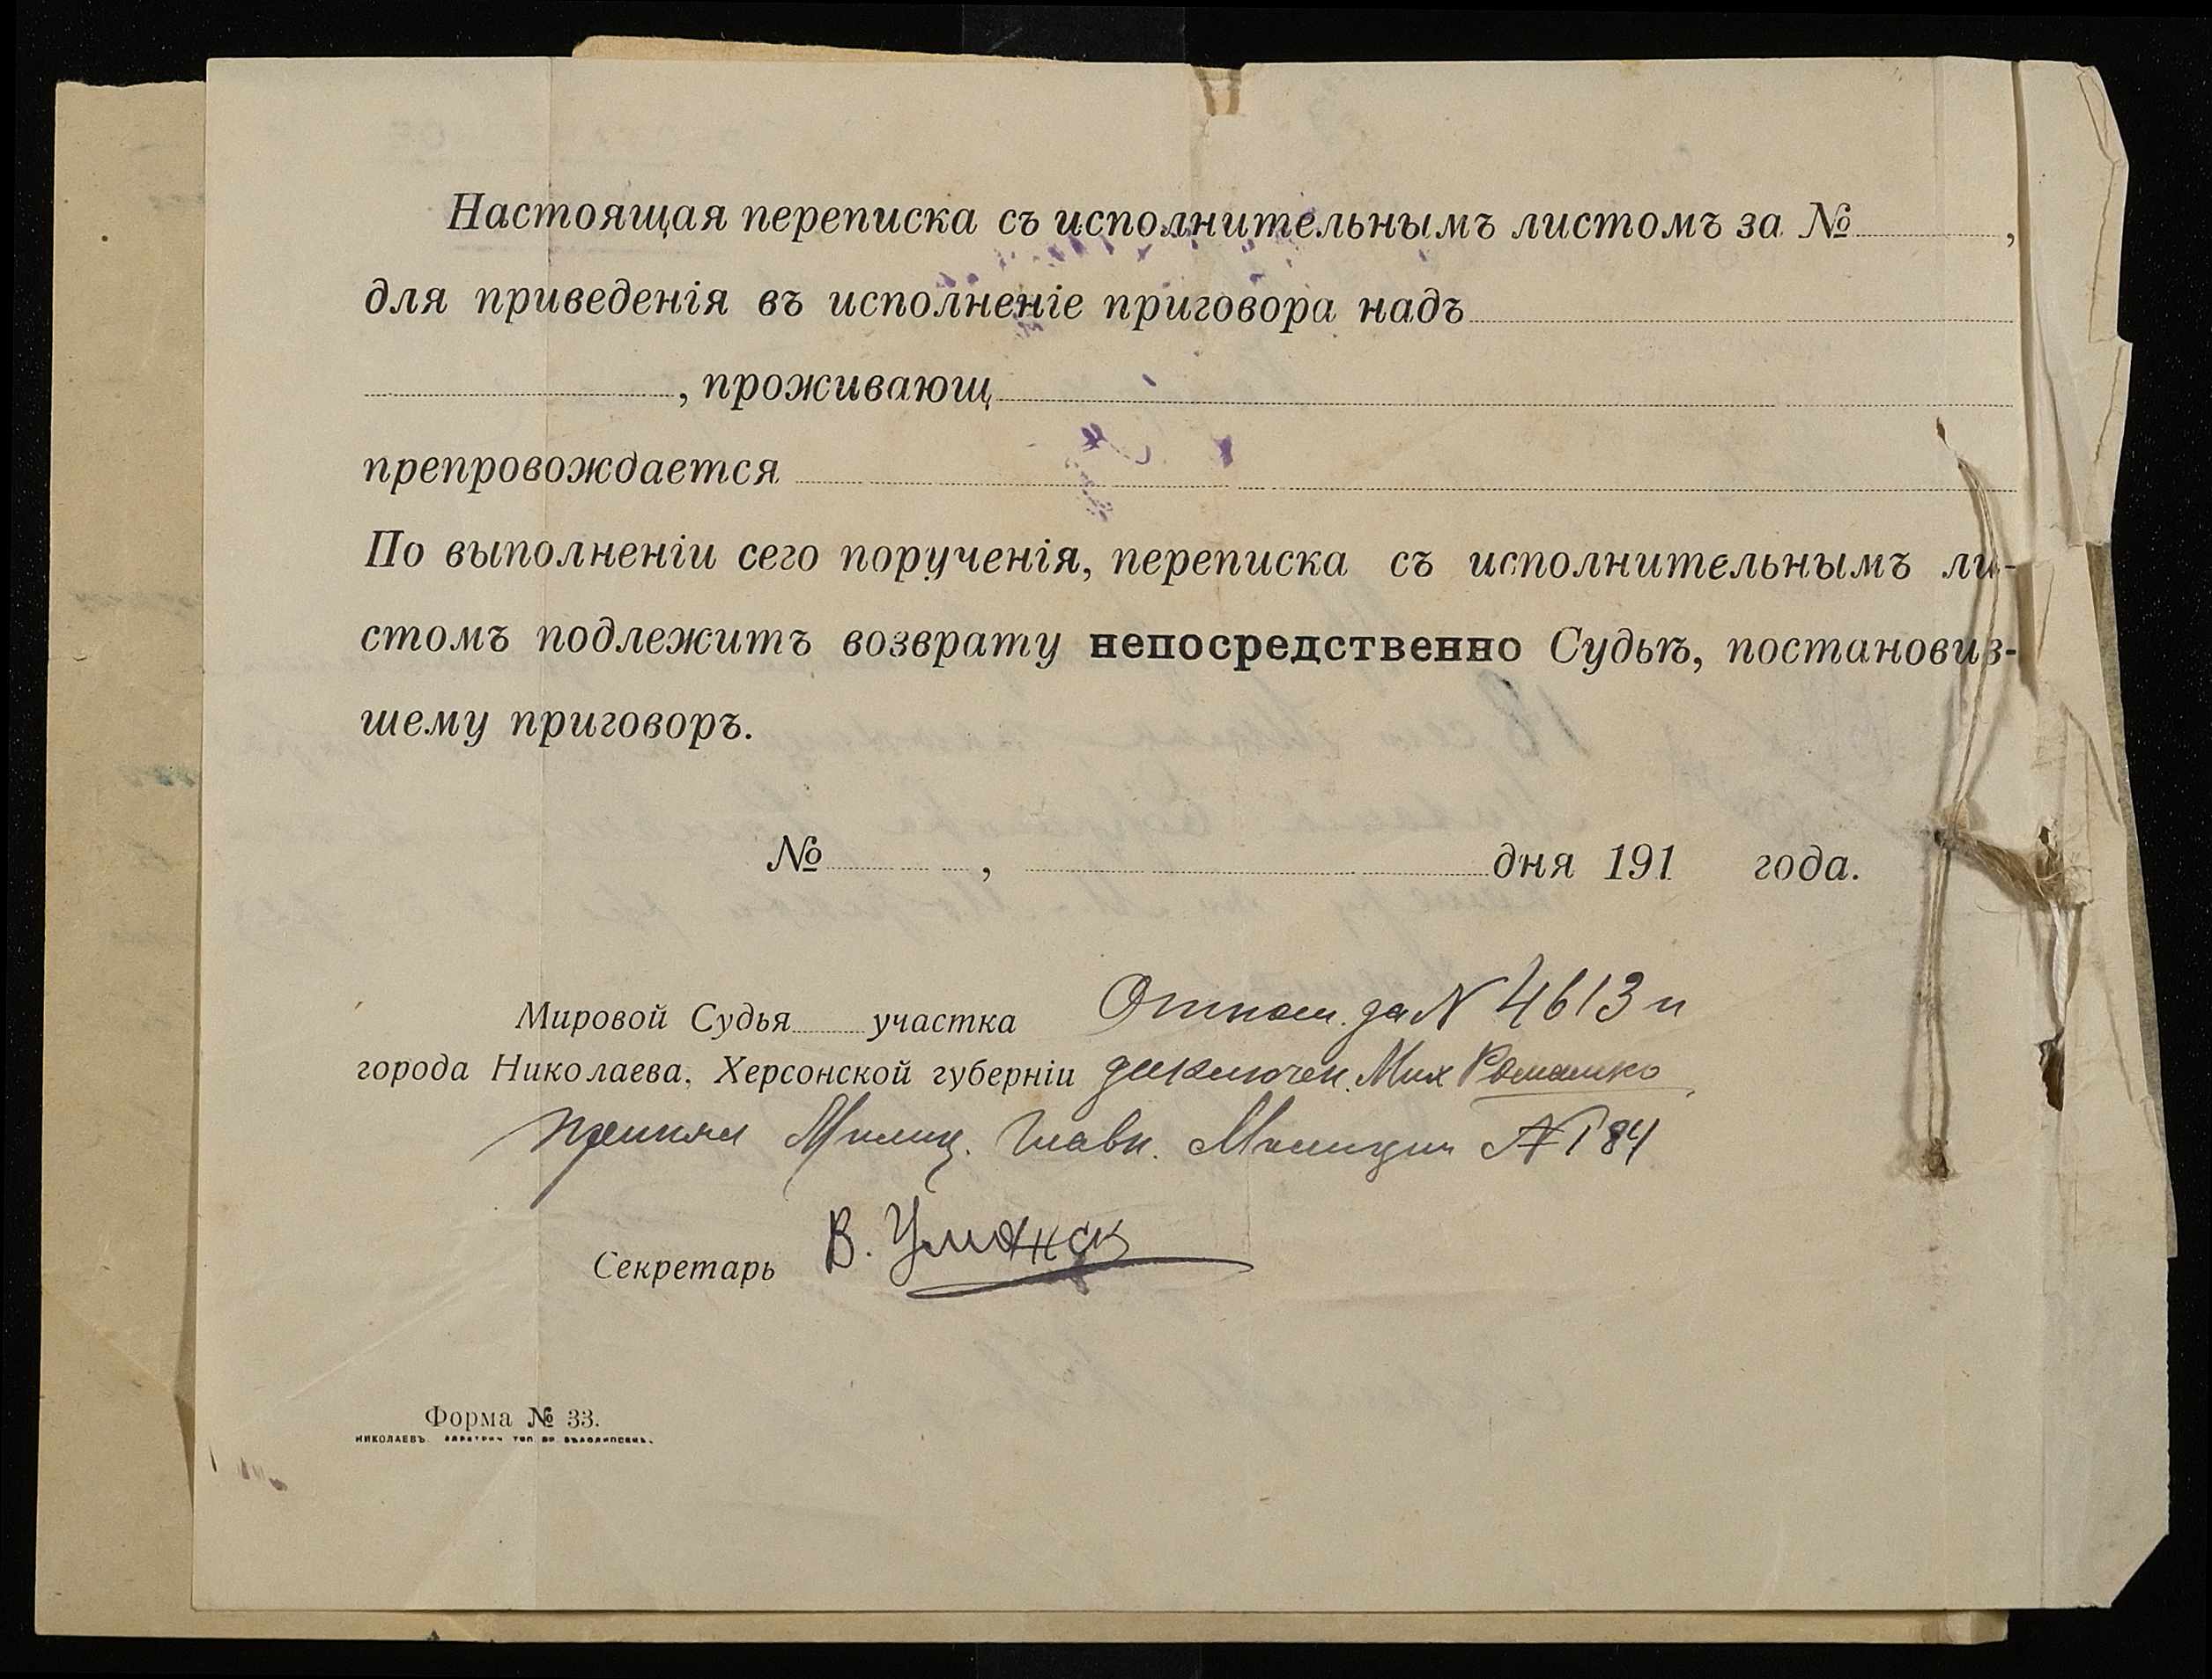 Настоящая переписка съ исполнительнымъ листомъ за №,
для приведенія въ исполненіе приговора надъ
, проживающ
препровождается
По выполненіи сего порученія, переписка съ исполнительнымъ ли-
стомъ подлежитъ возврату непосредственно Судьѣ, постановив-
шему приговоръ.
№ , дня 191 года.
Мировой Судья участка
Отнош. за N 4613 и
города Николаева, Херсонской губерніи
заключен. Мих Ромашко
принял Милиц. Главн. Милиции N 184
Секретарь В. Уманск
Форма № 33.
НИКОЛАЕВЪ.